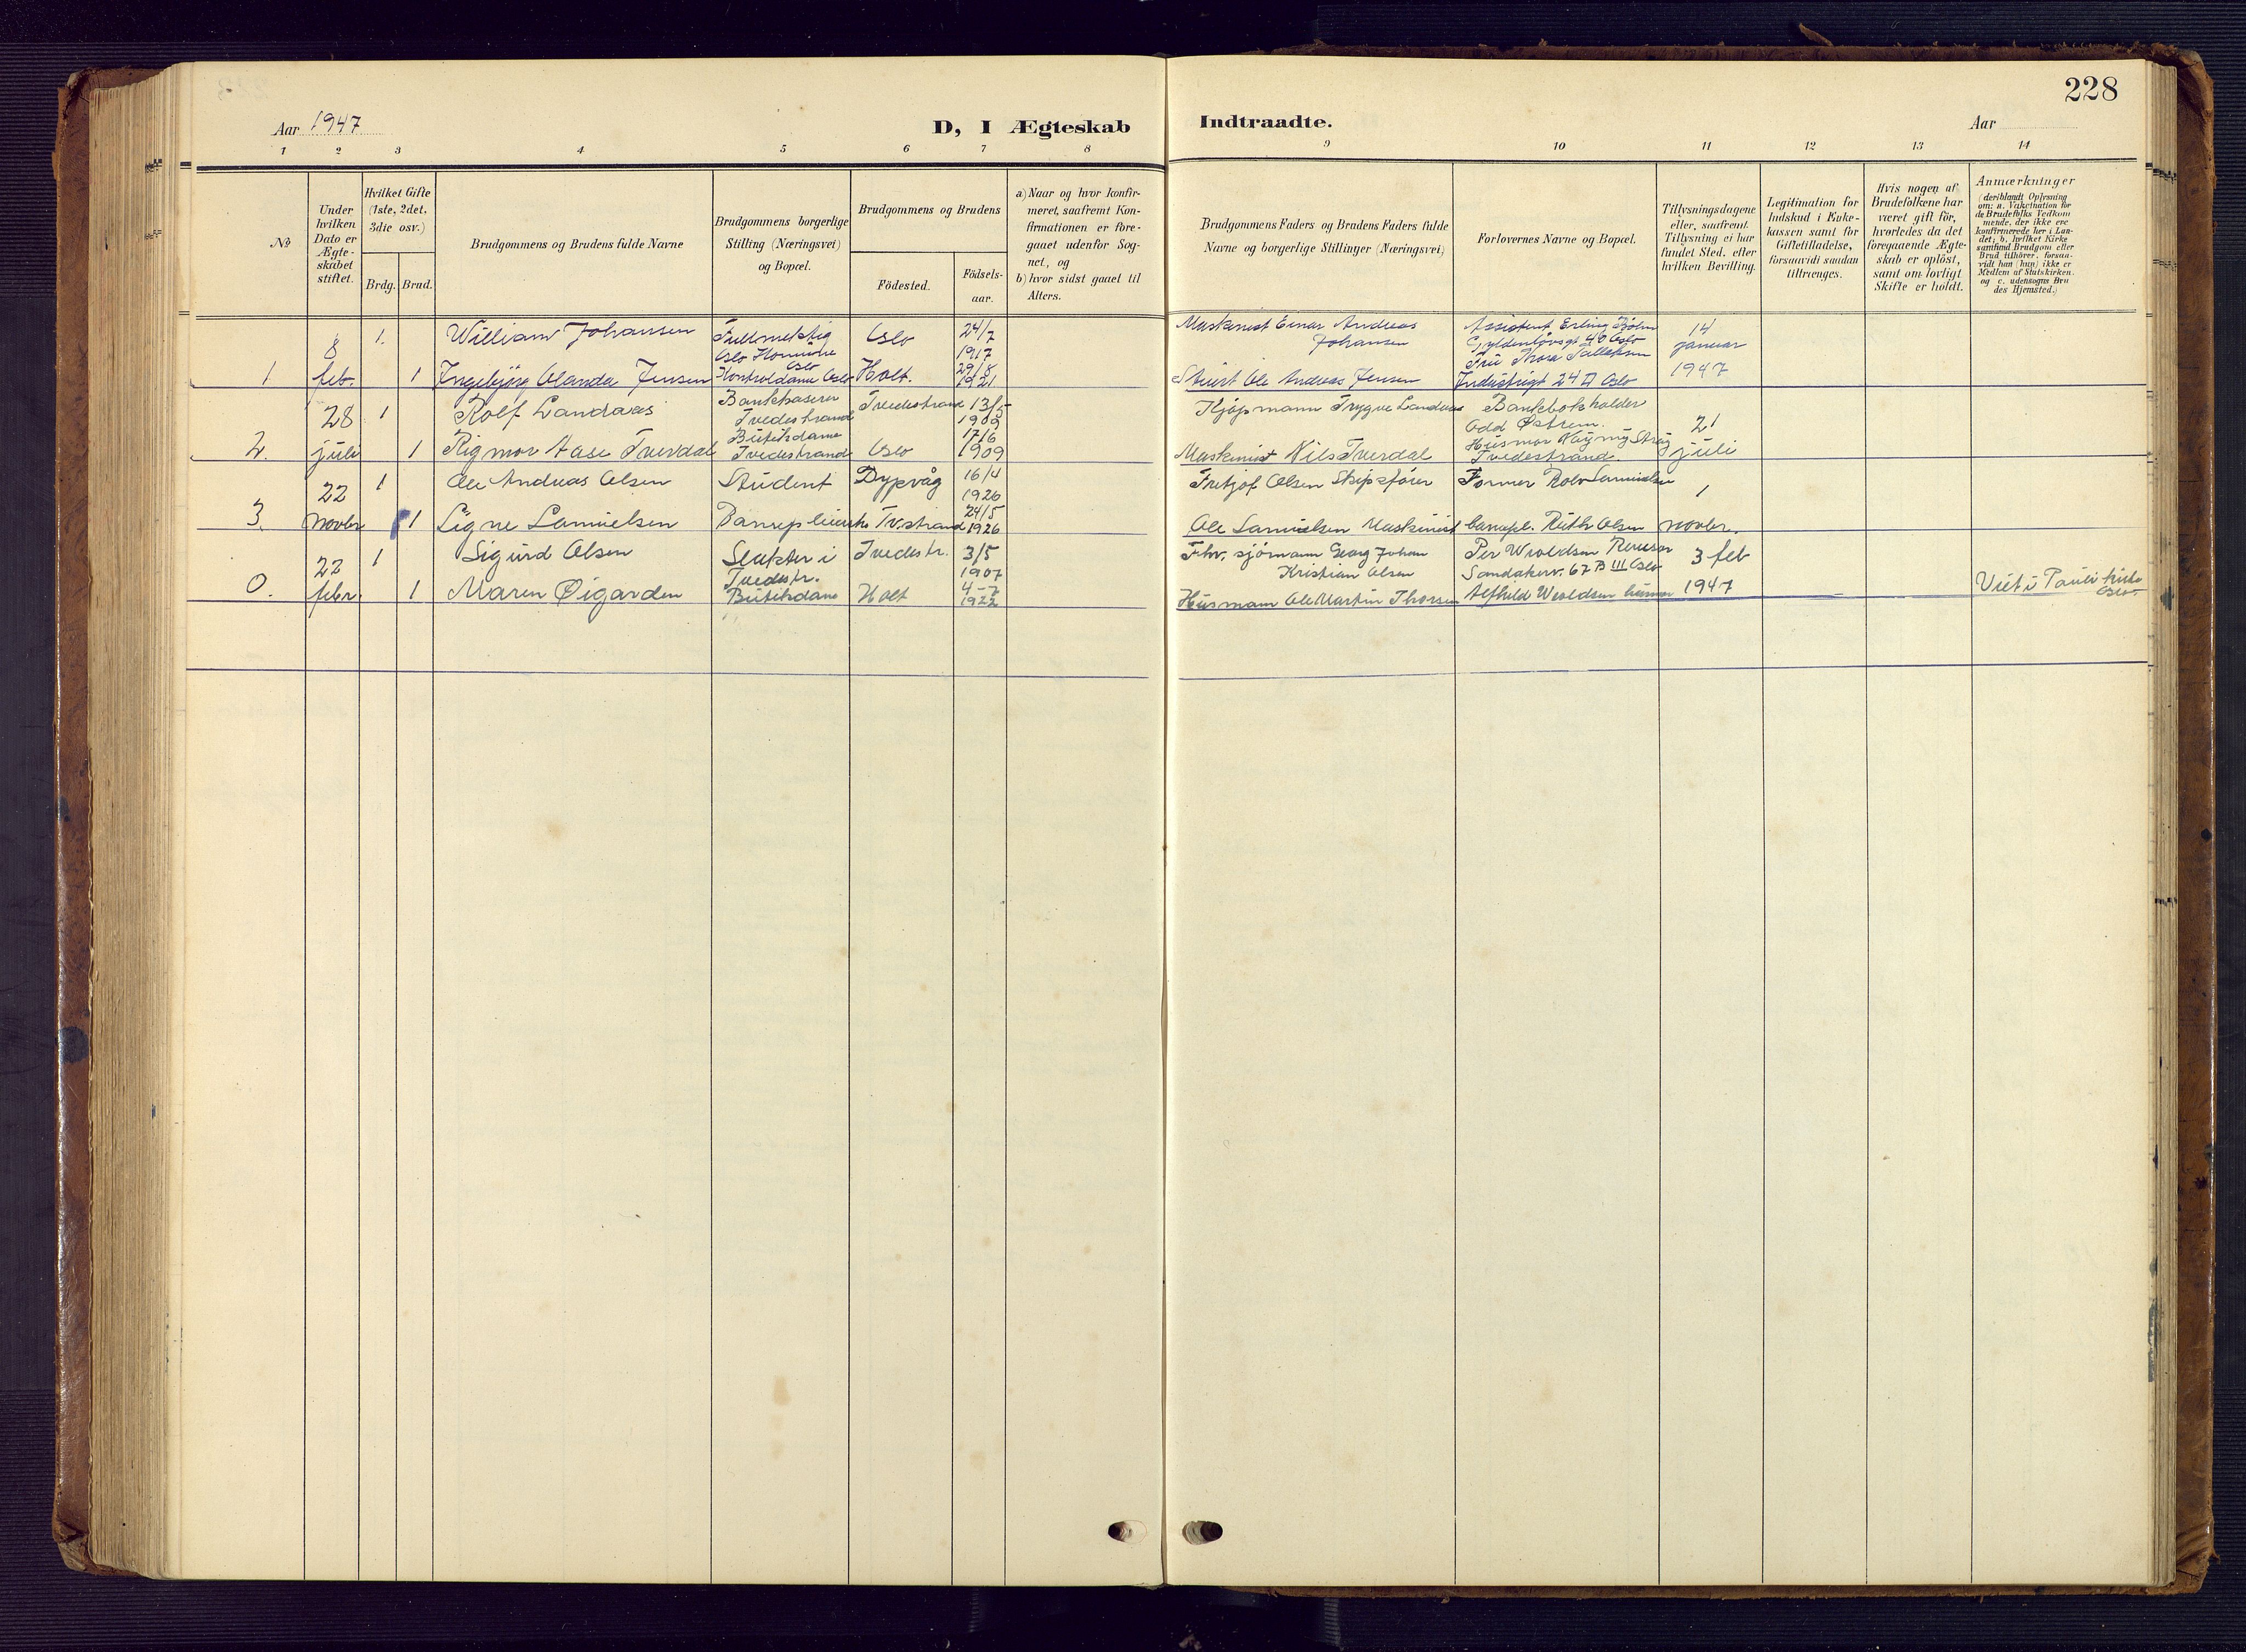 228
Aar 1947
D, I Ægteskab
Indtraadte.
Aar
1 2 3 4 5 6 7 8
9 10 11 12 13 14
No
Under
hvilken
Dato er
Ægte-
skabet
stiftet.
Hvilket Gifte
(1ste, 2det,
3die osv.)
Brdg. Brud.
Brudgommens og Brudens fulde Navne
Brudgommens borgerlige
Stilling (Næringsvei)
og Bopæl.
Brudgommens og Brudens
Födested.
Födsels-
aar.
a) Naar og hvor konfir-
meret, saafremt Kon-
firmationen er fore-
gaaet udenfor Sog-
net, og
b) hvor sidst gaaet til
Alters.
Brudgommens Faders og Brudens Faders fulde
Navne og borgerlige Stillinger (Næringsvei)
Forlovernes Navne og Bopæl.
Tillysningsdagene
eller, saafremt
Tillysning ei har
fundet Sted, efter
hvilken Bevilling.
Legitimation for
Indskud i Enke-
kassen samt for
Giftetilladelse,
forsaavidt saadan
tiltrænges.
Hvis nogen af
Brudefolkene har
været gift för,
hvorledes da det
foregaaende Ægte-
skab er oplöst,
samt om lovligt
Skifte er holdt.
Anmærkninger
(deriblandt Oplysning
om: a. Vakcination for
de Brudefolks Vedkom
mende, der ikke ere
konfirmerede her i Lan-
det; b. hvilket Kirke
samfund Brudgom eller
Brud tilhörer, forsaa-
vidt han (hun) ikke er
Medlem af Statskirken.
og c. udensogns Bru
des Hjemsted.)
1. 8 feb. 1.
William Johansen
Fullmektig
Oslo Kommune
Oslo
Oslo
24/7
1917
Maskinist Einar Andreas
Johansen
Assistent Erling Bölm
Gyldenløvsgt 40 Oslo
14
januar
1947
1 Ingebjørg Olanda Jensen
Kontroldame Oslo
Holt.
29/8
1921
Stuert Ole Andreas Jensen
Frü Thora Tallaksen
Industrigt 24 II Oslo
2. 28 juli 1
Rolf Landaas
Bankkaserer
Tvedestrand
Tvedestrand
13/5
1909
Kjøpmann Trygve Landaas
Bankbokholder
Odd Østrem.
21
juli
1 Rigmor Aase Tverdal
Butikdame
Tvedestrand
Oslo
17/6
1909
Maskinist Nils Tverdal
Husmor
Tvedestrand.
3. 22 novbr 1
Ole Andreas Olsen
Student
Dypvåg
16/4
1926
Fritjof Olsen Skipsfører
Former Rolv Samuelsen
1
novbr.
1 Signe Samuelsen
Barnepleierske
Tv.strand
24/5
1926
Ole Samuelsen Maskinist
barnepl. Ruth Olsen
0. 22 febr. 1
Sigurd Olsen
Slakter i
Tvedestr.
Tvedestr.
3/5
1907
Fhv. sjømann Georg Johan
Kristian Olsen
Per Wroldsen
Sandakerv. 67 B III Oslo
3 feb
1947
1 Maren Øigarden
Butikdame
Holt
4-7
1922
Husmann Ole Martin Thorsen
Alfhild Wroldsen husmor
Viet i Pauli kirke
Oslo.